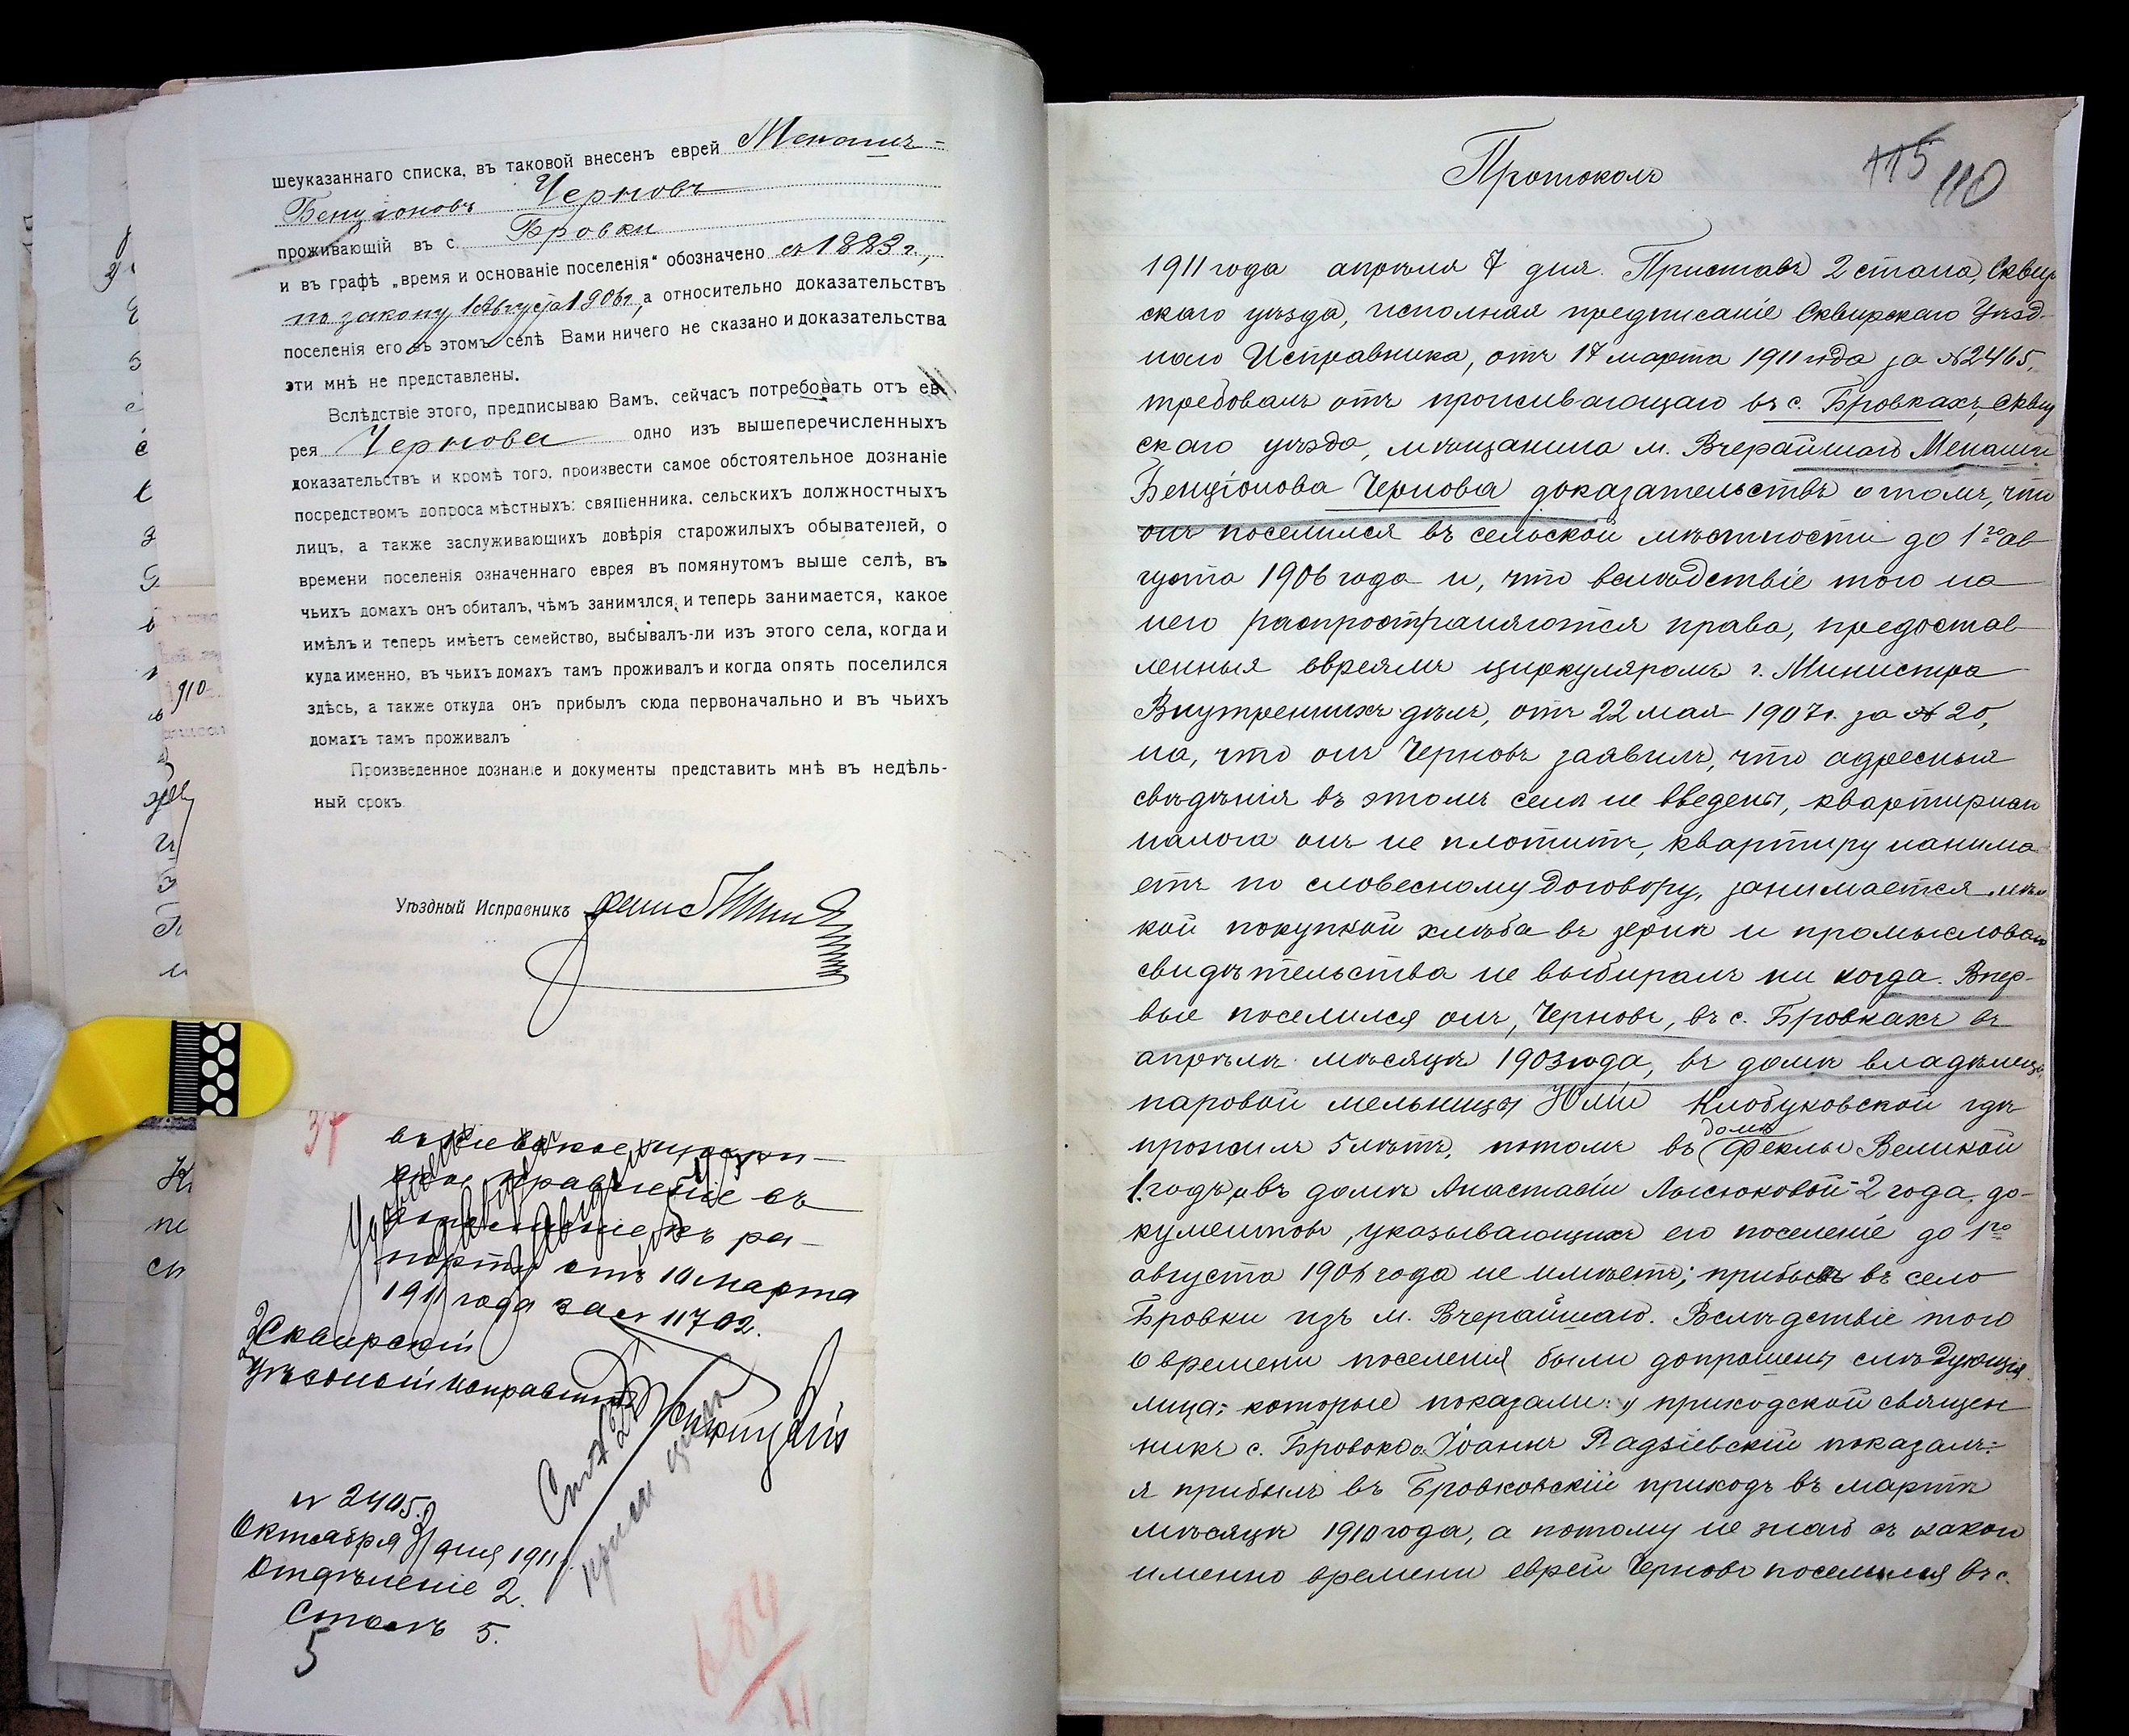 шеуказаннаго списка, въ таковой внесенъ еврей Менашъ-
Бенціоновъ Черновъ
проживающій въ с. Бровки
и въ графѣ „время и основаніе поселенія" обозначено съ 1883 г.,
по закону 1 августа 1906 г., а относительно доказательствъ
поселенія его въ этомъ селѣ Вами ничего не сказано и доказательства
эти мнѣ не представлены.
Вслѣдствіе этого, предписываю Вамъ, сейчасъ потребовать отъ ев-
рея Чернова одно изъ вышеперечисленныхъ
доказательствъ и кромѣ того, произвести самое обстоятельное дознаніе
посредствомъ допроса мѣстныхъ: священника, сельскихъ должностныхъ
лицъ, а также заслуживающихъ довѣрія старожилыхъ обывателей, о
времени поселенія означеннаго еврея въ помянутомъ выше селѣ, въ
чьихъ домахъ онъ обиталъ, чѣмъ занимался, и теперь занимается, какое
имѣлъ и теперь имѣетъ семейство, выбывалъ-ли изъ этого села, когда и
куда именно, въ чьихъ домахъ тамъ проживалъ и когда опять поселился
здѣсь, а также откуда онъ прибылъ сюда первоначально и въ чьихъ
домахъ тамъ проживалъ
Произведенное дознаніе и документы представить мнѣ въ недѣль-
ный срокъ
Уѣздный Исправникъ
910
37
правленіе въ
ра-
порту отъ 10 Марта
1911 года за № 11702.
Сквирскій
Уѣздный Исправникъ
№ 2405.
Октября 31 дня 1911 г.
Отдѣленіе 2.
Столъ 5.
5
684
11
Протоколъ
115 110
1911 года апрѣля 7 дня. Приставъ 2 стана, Сквир
скаго уѣзда, исполняя предписаніе Сквирскаго Уѣзд-
наго Исправника, отъ 17 марта 1911 года за № 2465,
требовалъ отъ проживающаго въ с. Бровкахъ, Сквир
скаго уѣзда, мѣщанина м. Вчерайшаго Менаши
Бенціонова Чернова доказательствъ о томъ, что
онъ поселился въ сельской мѣстности до 1го ав
густа 1906 года и, что вслѣдствіе того на
него распространяются права, предостав
ленныя евреямъ циркуляромъ г. Министра
Внутреннихъ дѣлъ, отъ 22 мая 1907 г. за № 20,
на, что онъ Черновъ заявилъ, что адресныя
свѣдѣнія въ этомъ селѣ не введены, квартирнаго
налога онъ не платитъ, квартиру нанима-
етъ по словесному договору, занимается мѣл
кой покупкой хлѣба въ зернѣ и промысловаго
свидѣтельства не выбиралъ ни когда. Впер-
вые поселился онъ, Черновъ, въ с. Бровкахъ въ
апрѣлѣ мѣсяцѣ 1903 года, въ домѣ владѣлицы
паровой мельницы Юліи Клобуковской гдѣ
прожилъ 5 лѣтъ, потомъ въ домѣ Феклы Великой
1 годъ, и въ домѣ Анастасіи Лысюковой 2 года, до-
кументовъ, указывающихъ его поселеніе до 1го
августа 1906 года не имѣетъ; прибылъ въ село
Бровки изъ м. Вчерайшаго. Вслѣдствіе того
о времени поселенія были допрошены слѣдующія
лица; которые показали: 1) приходской священ
никъ с. Бровокъ о. Іоаннъ Радзіевскій показалъ:
я прибылъ въ Бровковскій приходъ въ мартѣ
мѣсяцѣ 1910 года, а потому не знаю съ какого
именно времени еврей Черновъ поселился въ с.